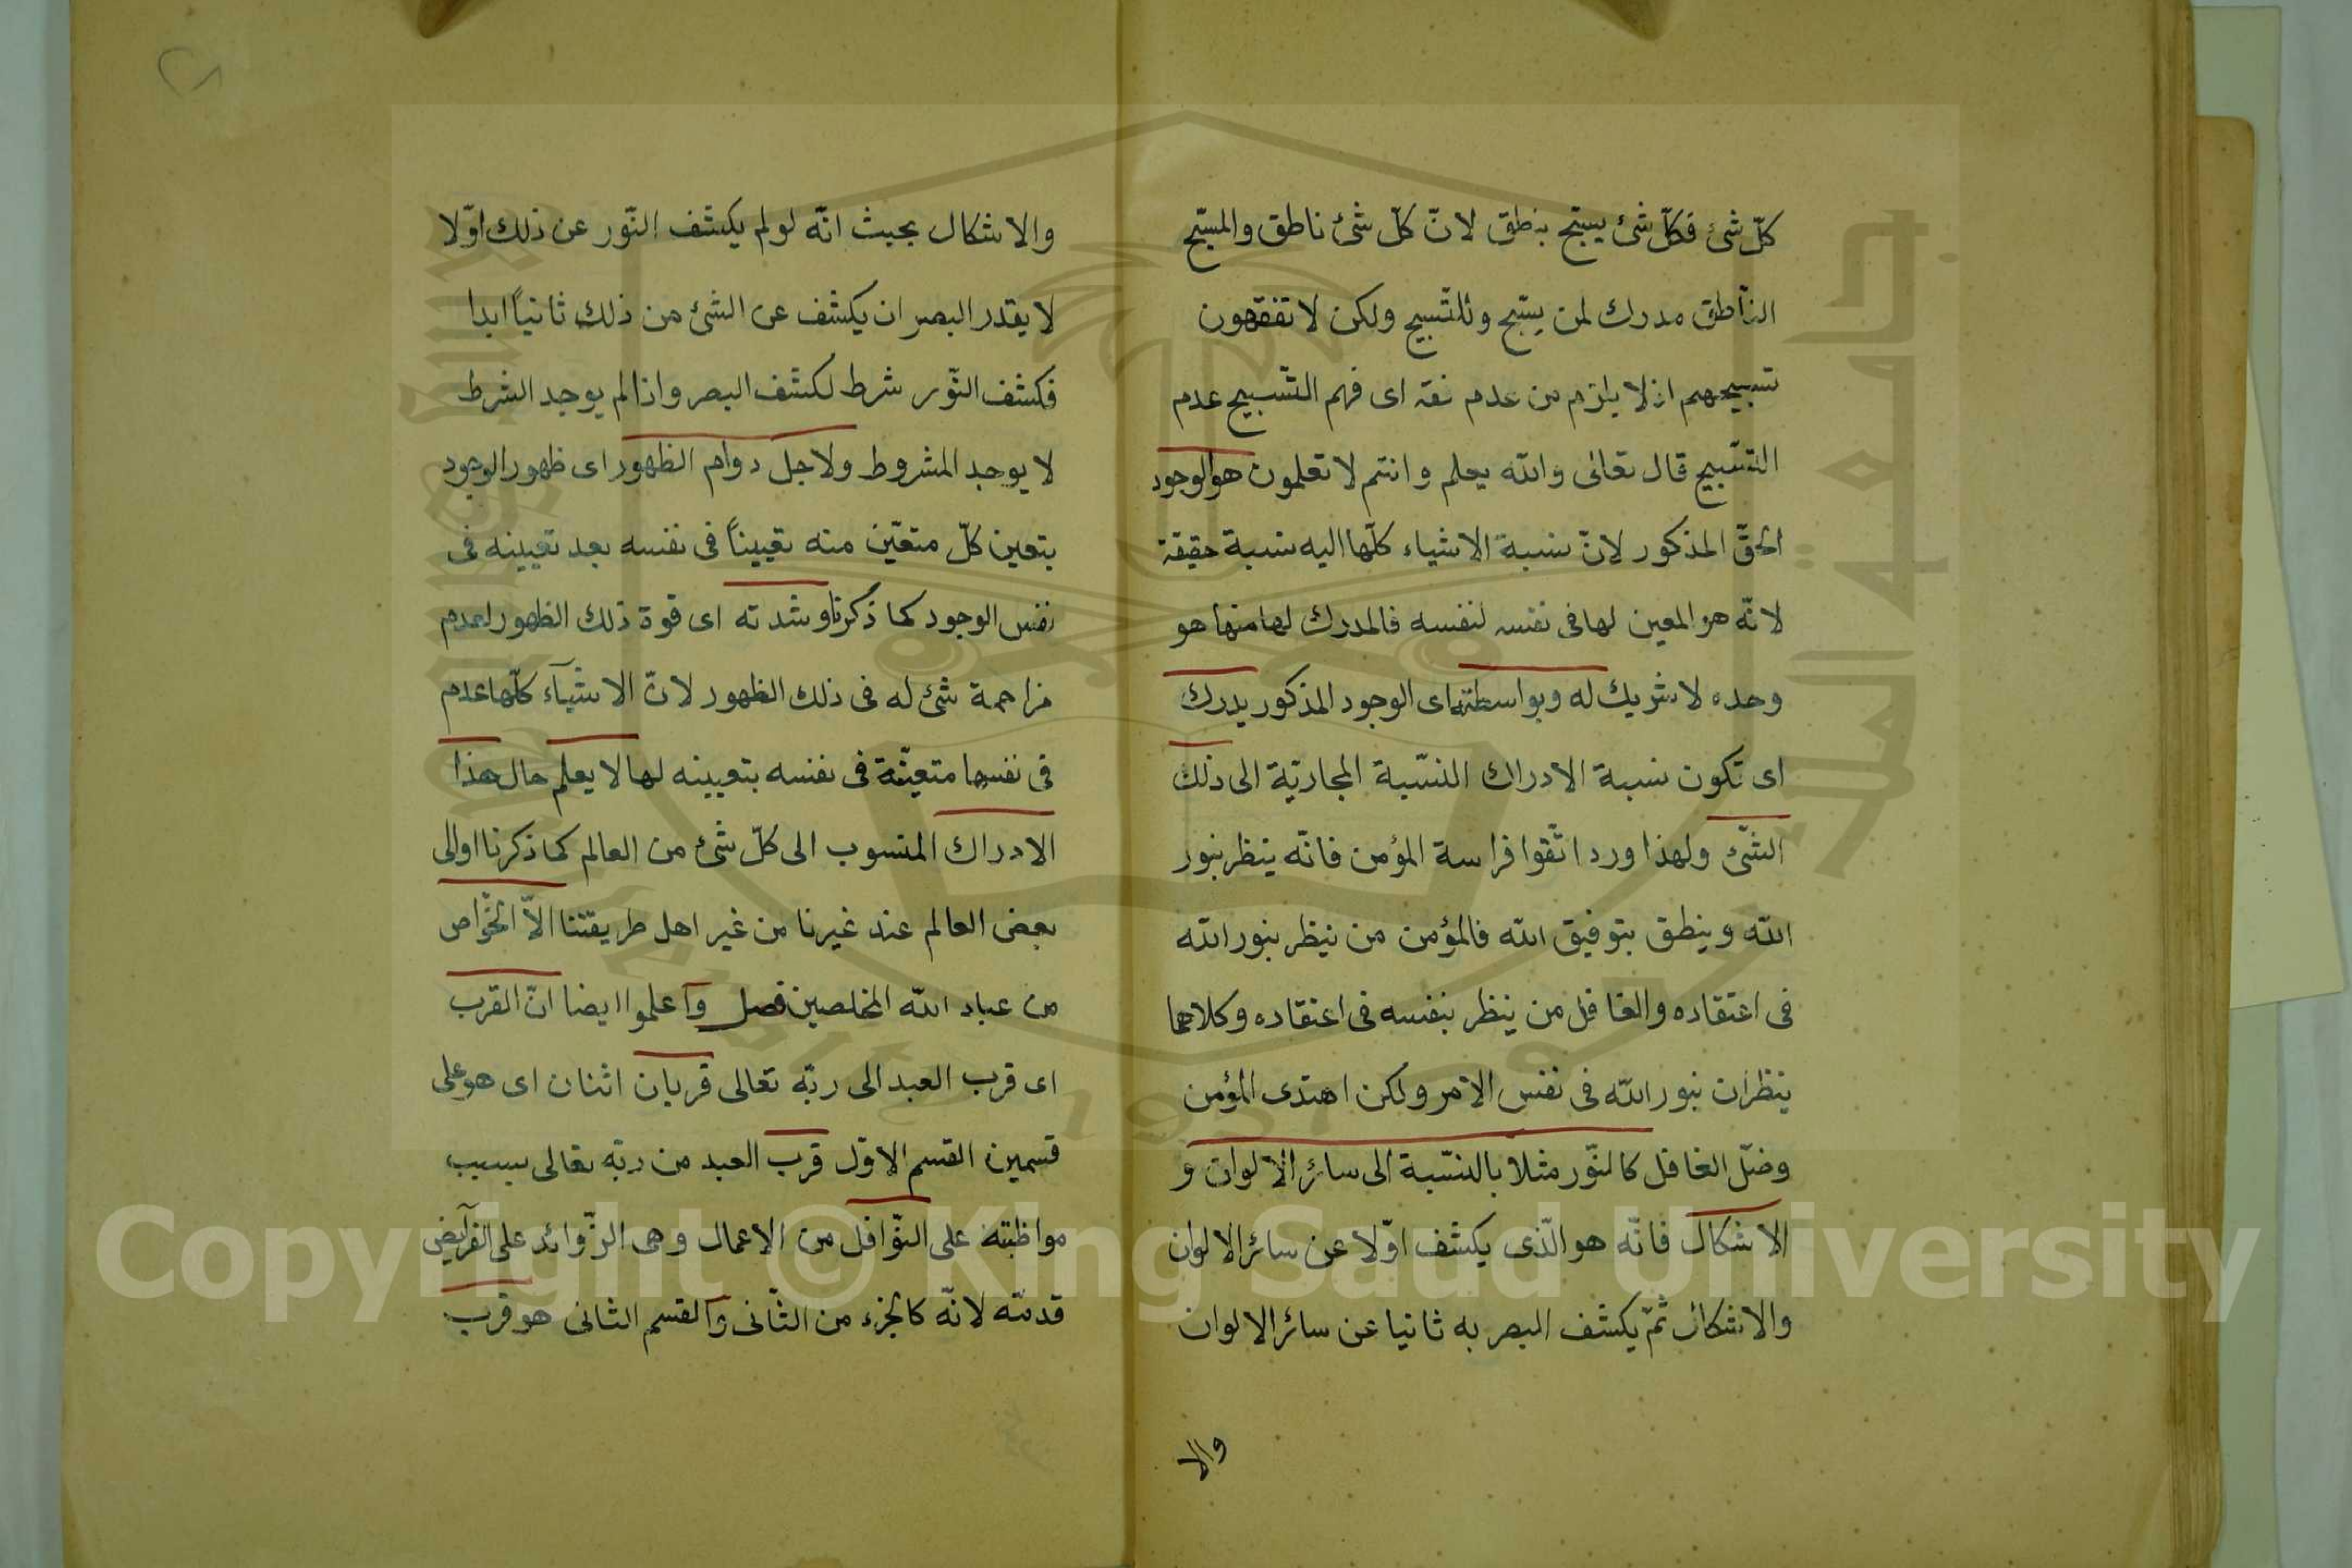 كلّ شئ فكلّ شئ يسبّح بنطق لانّ كلّ شئ ناطق والمسبّح
النّاطق مدرك لمن يسبّح وللتّسبيح ولكن لا تفقهون
تسبيحهم اذ لا يلزم من عدم فقه اى فهم التّسبيح عدم
التّسبيح قال تعالى والله يعلم وانتم لا تعلمون هو الوجود
الحقّ المذكور لانّ نسبة الاشياء كلّها اليه نسبة حقيقة
لانّه هو المعين لها فى نفسه لنفسه فالمدرك لها منها هو
وحده لا شريك له وبواسطته اى الوجود المذكور يدرك
اى تكون نسبة الادراك النّسبة المجازيّة الى ذلك
الشّئ ولهذا ورد اتّقوا فراسة المؤمن فانّه ينظر بنور
الله وينطق بتوفيق الله فالمؤمن من ينظر بنور الله
فى اعتقاده والغافل من ينظر بنفسه فى اعتقاده وكلاهما
ينظران بنور الله فى نفس الامر ولكن اهتدى المؤمن
وضلّ الغافل كالنّور مثلا بالنّسبة الى سائر الالوان و
الاشكال فانّه هو الّذى يكشف اوّلا عن سائر الالوان
والاشكال ثمّ يكشف البصر به ثانيا عن سائر الالوان
والا
والاشكال بحيث انّه لو لم يكشف النّور عن ذلك اوّلا
لا يقدر البصر ان يكشف عن الشئ من ذلك ثانياً ابدا
فكشف النّور شرط لكشف البصر واذا لم يوجد الشرط
لا يوجد المشروط ولاجل دوام الظهور اى ظهور الوجود
بتعين كلّ متعيّن منه تعييناً فى نفسه بعد تعيينه فى
نفس الوجود كما ذكرنا وشدته اى قوة ذلك الظهور لعدم
مزاحمة شئ له فى ذلك الظهور لانّ الاشيآء كلّها عدم
فى نفسها متعيّنة فى نفسه بتعيينه لها لا يعلم حال هذا
الادراك المنسوب الى كلّ شئ من العالم كما ذكرنا او الى
بعض العالم عند غيرنا من غير اهل طريقتنا الاّ الخّواص
من عباد الله المخلصين فصل وآعلموا ايضا انّ القرب
اى قرب العبد الى ربّه تعالى قربان اثنان اى هو على
قسمين القسم الاوّل قرب العبد من ربّه تعالى بسبب
مواظبته على النّوافل من الاعمال وهى الزّوائد على الفرآيض
قدمّه لانّه كالجزء من الثّانى وآلقسم الثانى هو قرب
Copyright © King Saud University